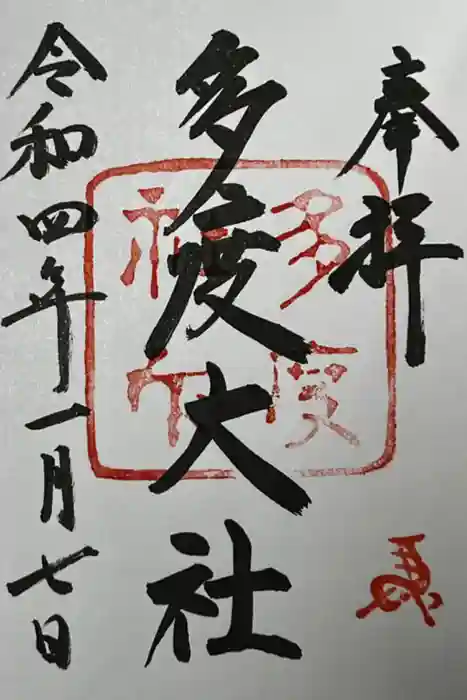 奉拝
多度大社
令和四年一月七日
多度
神社